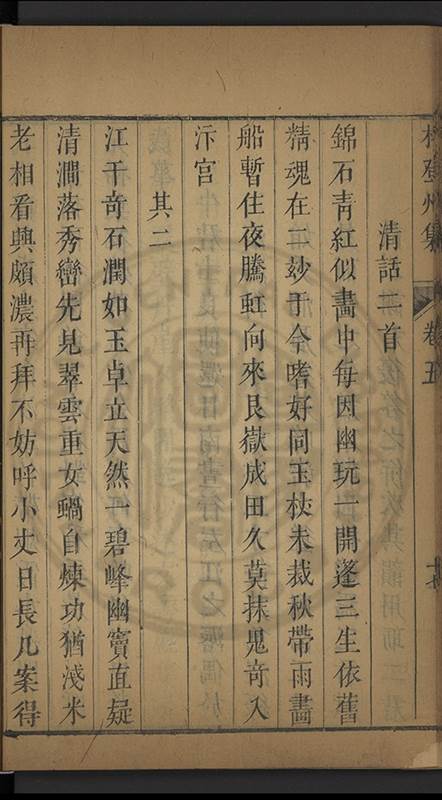 林登州集 卷五
清話二首
錦石青紅似畵中每因幽玩一開蓬三生依舊
精魂在二妙于今嗜好同玉杖未裁秋帶雨畵
船暫住夜騰虹向來艮嶽成田久莫抹鬼奇入
汴宫
其二
江干奇石潤如玉卓立天然一碧峰幽竇直疑
清澗落秀巒先見翠雲重女蝸自煉功猶淺米
老相看興頗濃再拜不妨呼小丈日長几案得